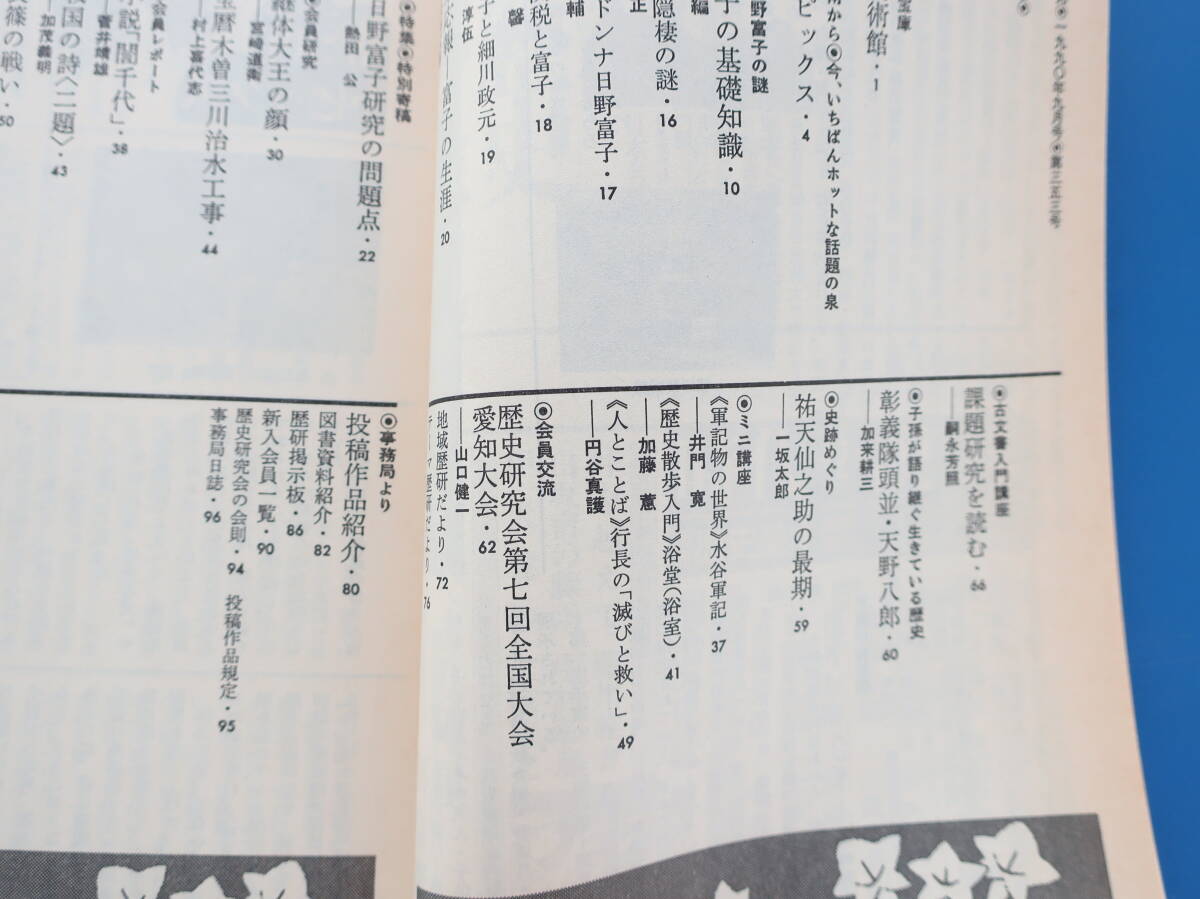 一九九〇年九月号◉第三五三号
宝庫
術館・1
から◉今、いちばんホットな話題の泉
ピックス・4
野富子の謎
子の基礎知識・10
編
隠棲の謎・16
正
ドンナ日野富子・17
輔
税と富子・18
馨
子と細川政元・19
淳伍
富子の生涯・20
◉特集◉特別寄稿
日野富子研究の問題点・22
──熱田 公
◉会員研究
継体大王の顔・30
──宮崎道衛
宝暦木曽三川治水工事・44
──村上喜代志
会員レポート
小説「誾千代」・38
──菅井靖雄
国の詩〈二題〉・43
──加茂義明
長篠の戦い・50
◉古文書入門講座
課題研究を読む・66
──嗣永芳照
◉子孫が語り継ぐ生きている歴史
彰義隊頭並・天野八郎・60
──加来耕三
◉史跡めぐり
祐天仙之助の最期・59
──一坂太郎
◉ミニ講座
《軍記物の世界》水谷軍記・37
──井門 寛
《歴史散歩入門》浴堂(浴室)・41
──加藤 蕙
《人とことば》行長の「滅びと救い」・49
──円谷真護
◉会員交流
歴史研究会第七回全国大会
愛知大会・62
──山口健一
地域歴研だより・72
テーマ歴研だより・76
◉事務局より
投稿作品紹介・80
図書資料紹介・82
歴研掲示板・86
新入会員一覧・90
歴史研究会の会則・94 投稿作品規定・95
事務局日誌・96